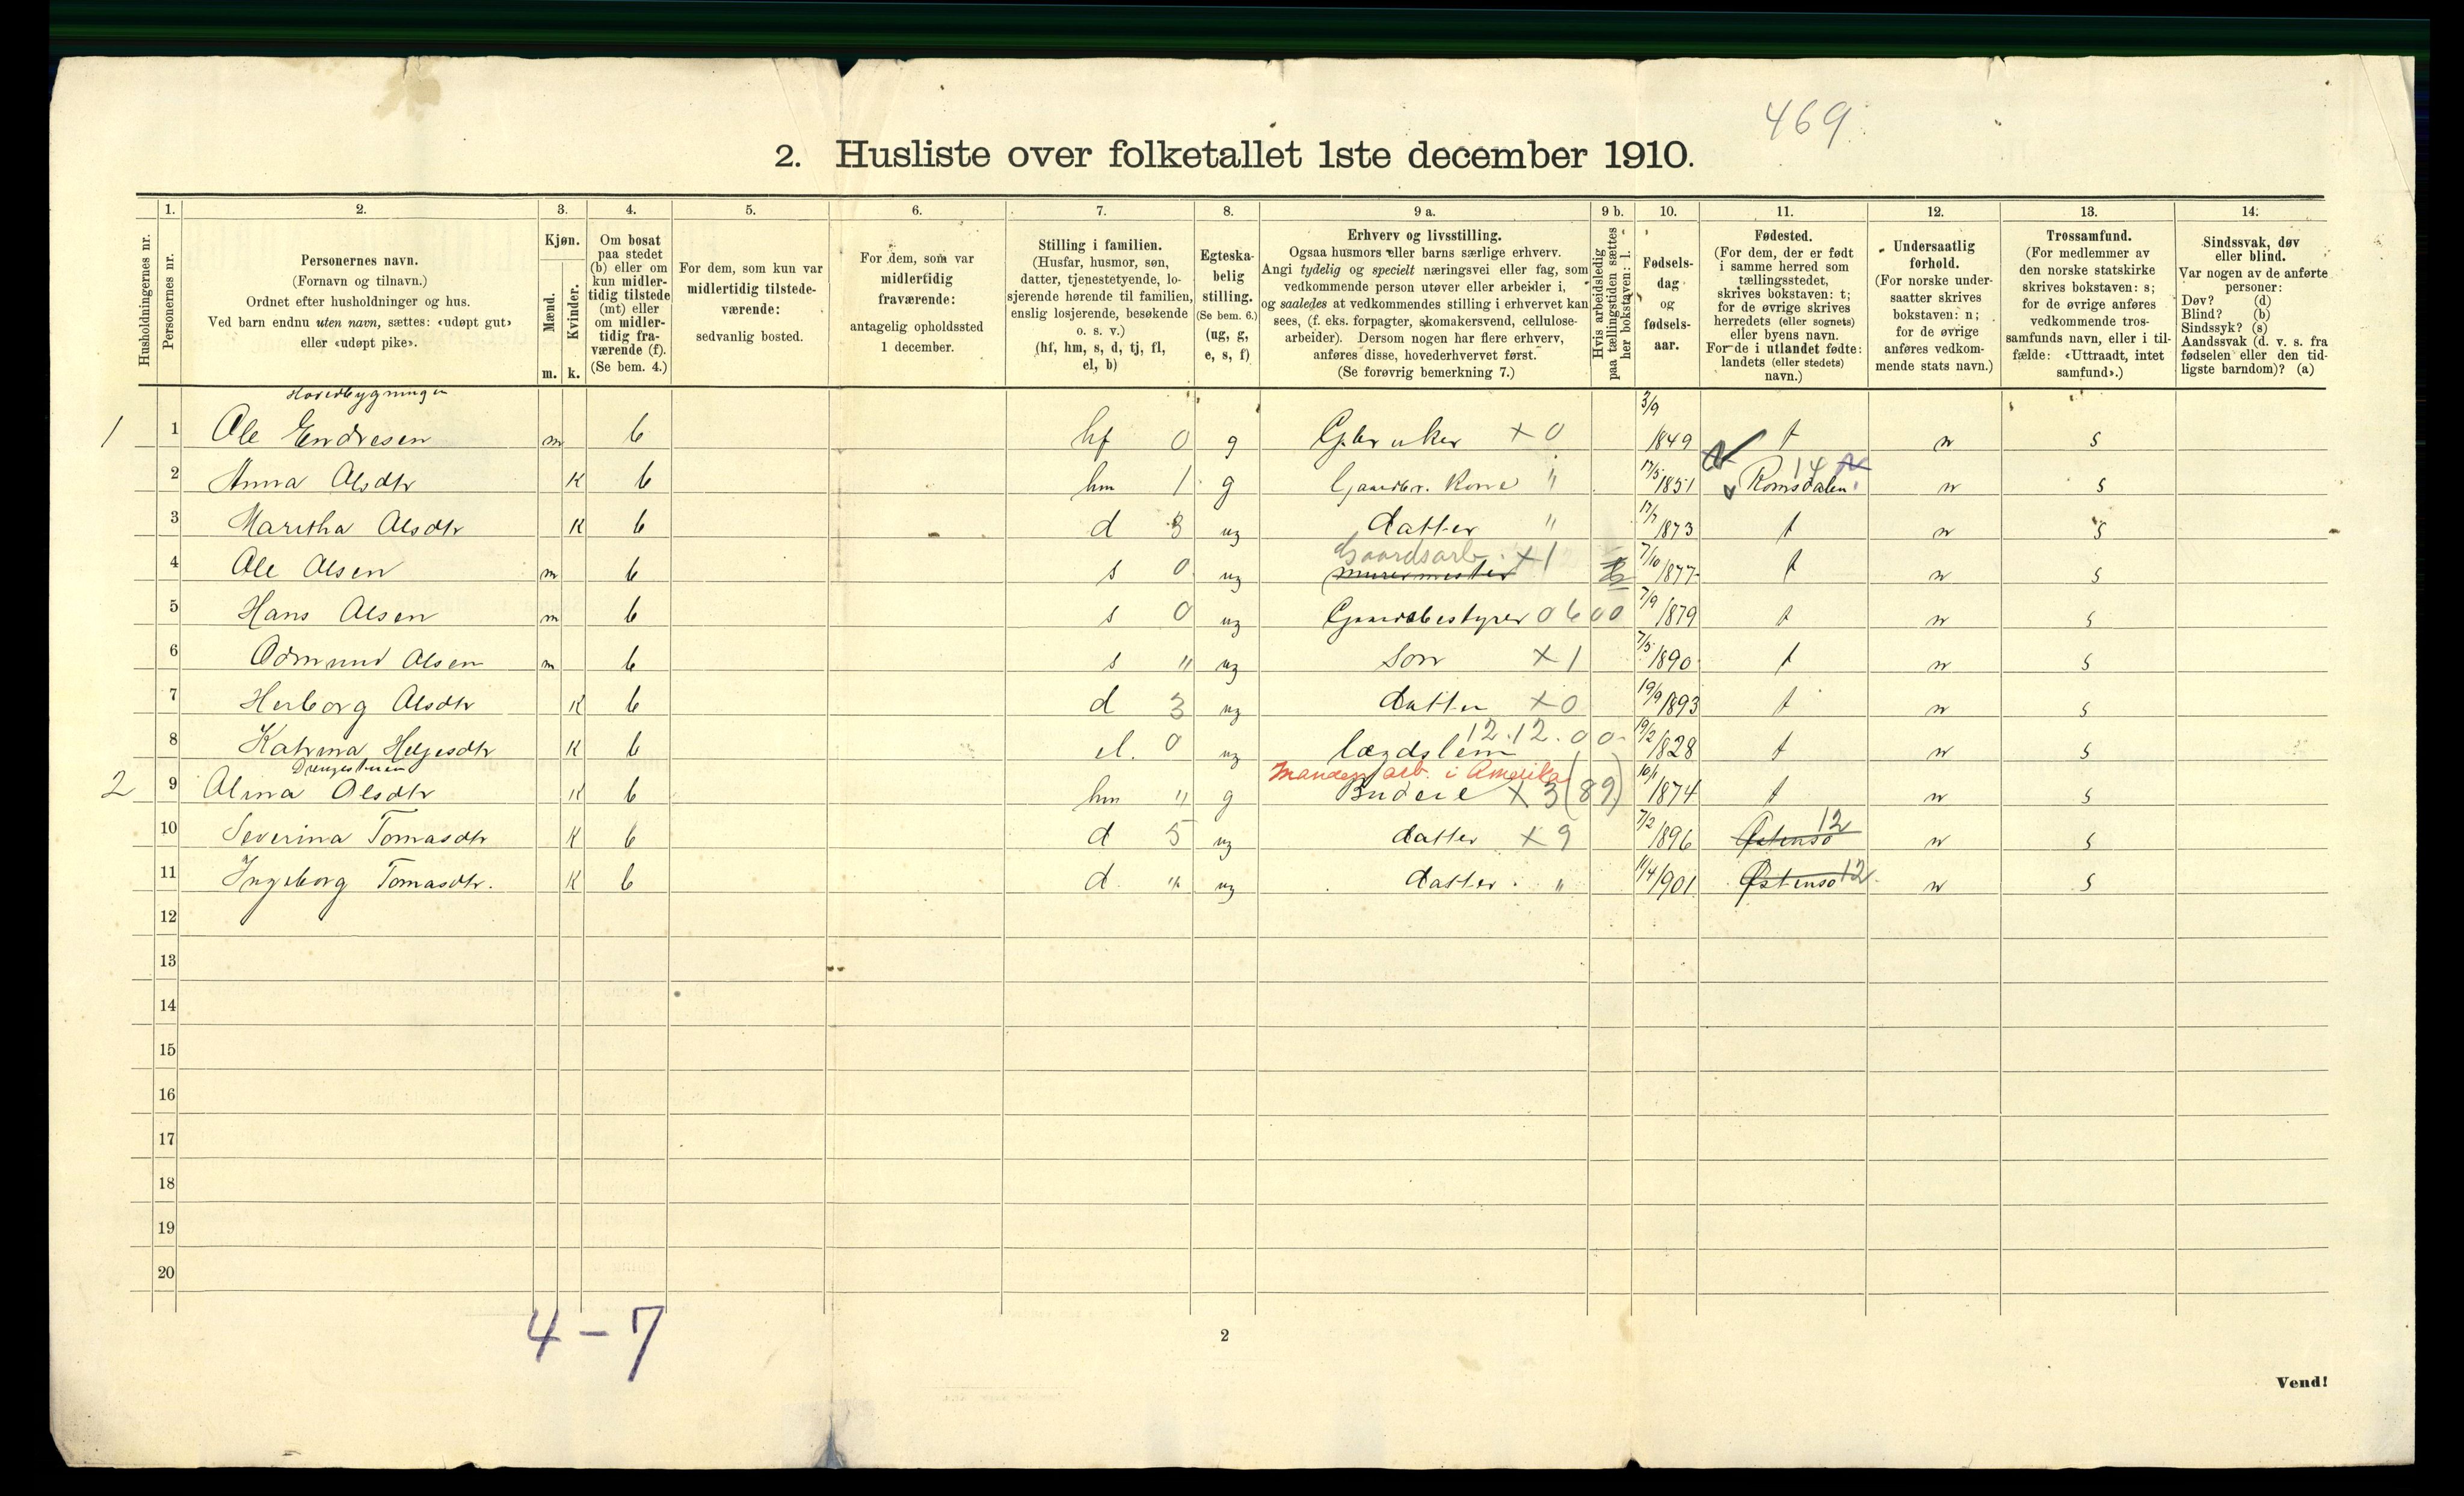 469.
2. Husliste over folketallet 1ste december 1910.
Husholdningernes nr.
1.
Personernes nr.
2.
Personernes navn.
(Fornavn og tilnavn.)
Ordnet efter husholdninger og hus.
Ved barn endnu uten navn, sættes: «udøpt gut»
eller «udøpt pike».
3.
Kjøn.
Mænd.
Kvinder.
m. k.
4.
Om bosat
paa stedet
(b) eller om
kun midler-
tidig tilstede
(mt) eller
om midler-
tidig fra-
værende (f).
(Se bem. 4.)
5.
For dem, som kun var
midlertidig tilstede-
værende:
sedvanlig bosted.
6.
For dem, som var
midlertidig
fraværende:
antagelig opholdssted
1 december.
7.
Stilling i familien.
(Husfar, husmor, søn,
datter, tjenestetyende, lo-
sjerende hørende til familien,
enslig losjerende, besøkende
o. s. v.)
(hf, hm, s, d, tj, fl,
el, b)
8.
Egteska-
belig
stilling.
(Se bem. 6.)
(ug, g,
e, s, f)
9 a.
Erhverv og livsstilling.
Ogsaa husmors eller barns særlige erhverv.
Angi tydelig og specielt næringsvei eller fag, som
vedkommende person utøver eller arbeider i,
og saaledes at vedkommendes stilling i erhvervet kan
sees, (f. eks. forpagter, skomakersvend, cellulose-
arbeider). Dersom nogen har flere erhverv,
anføres disse, hovederhvervet først.
(Se forøvrig bemerkning 7.)
9 b.
Hvis arbeidsledig
paa tællingstiden sættes
her bokstaven: l.
10.
Fødsels-
dag
og
fødsels-
aar.
11.
Fødested.
(For dem, der er født
i samme herred som
tællingsstedet,
skrives bokstaven: t;
for de øvrige skrives
herredets (eller sognets)
eller byens navn.
For de i utlandet fødte:
landets (eller stedets)
navn.)
12.
Undersaatlig
forhold.
(For norske under-
saatter skrives
bokstaven: n;
for de øvrige
anføres vedkom-
mende stats navn.)
13.
Trossamfund.
(For medlemmer av
den norske statskirke
skrives bokstaven: s;
for de øvrige anføres
vedkommende tros-
samfunds navn, eller i til-
fælde: «Uttraadt, intet
samfund».)
14.
Sindssvak, døv
eller blind.
Var nogen av de anførte
personer:
Døv? (d)
Blind? (b)
Sindssyk? (s)
Aandssvak (d. v. s. fra
fødselen eller den tid-
ligste barndom)? (a)
Hovedbygningen
1 1 Ole Endresen m b hf 0 g Gbruker × 0 3/9 1849 t n s
2 Anna Olsdtr k b hm 1 g Gaardbr. Kone " 17/5 1851 Romsdalen 14 n s
3 Maritha Olsdtr k b d 3 ug datter " 17/7 1873 t n s
4 Ole Olsen m b s 0 ug murermester Gaardsarb. × 1 7/10 1877 t n s
5 Hans Olsen m b s 0 ug Gaardsbestyrer 0 6 0 0 7/9 1879 t n s
6 Odmund Olsen m b s " ug Søn × 1 7/5 1890 t n s
7 Herborg Olsdtr k b d 3 ug datter × 0 19/9 1893 t n s
8 Katrina Helgesdtr k b el. 0 ug lægdslem 12.12.00 19/2 1828 t n s
Drengestuen
Manden arb. i Amerika
2 9 Alina Olsdtr k b hm " g Budeie × 3 (89) 10/1 1874 t n s
10 Severina Tomasdtr k b d 5 ug datter × 9 7/2 1896 Østensø 12 n s
11 Ingeborg Tomasdtr. k b d " ug datter " 11/4 1901 Østensø 12 n s
12
13
14
15
16
17
18
19
20
4 – 7
2
Vend!